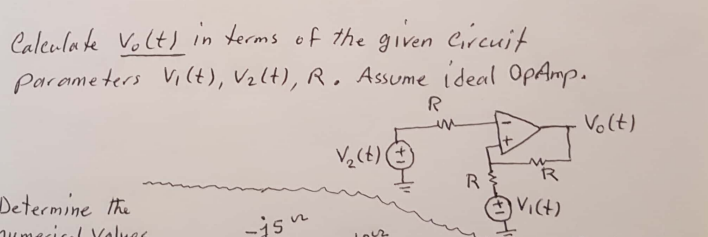 Calculate Vo(t) in terms of the given circuit
parameters V1(t), V2(t), R. Assume ideal OpAmp.
R
-
Vo(t)
+
V2(t)
+
-
R
R
+
-
V1(t)
Determine the
numerical values
-j5Ω